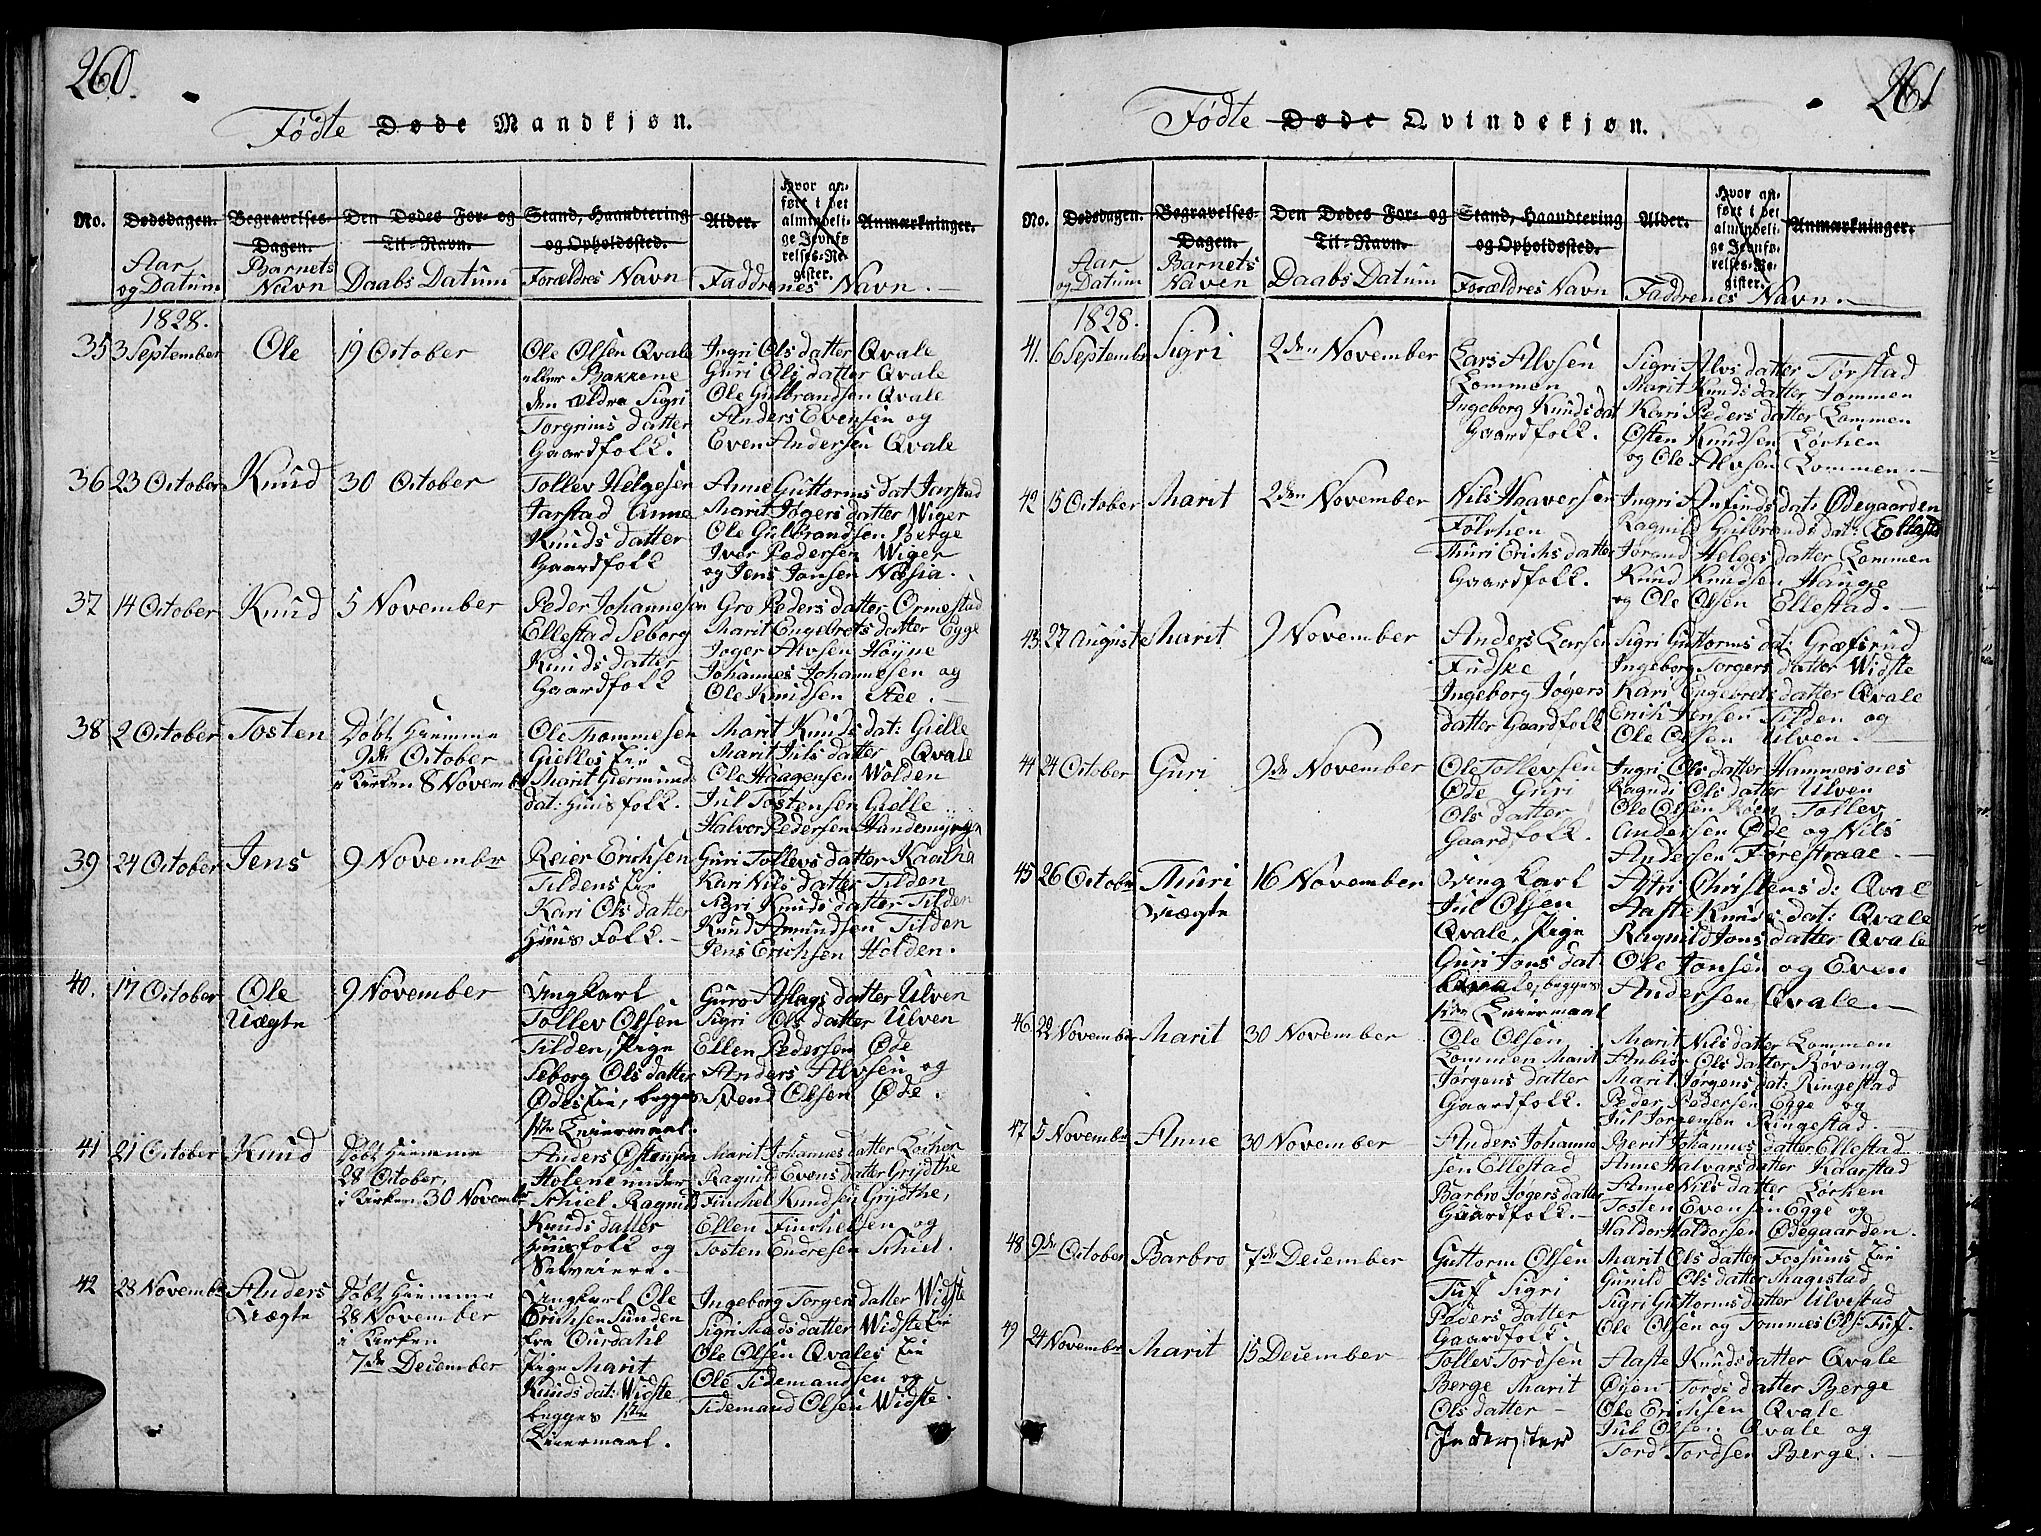 260.
Fødte Døde Mandkjøn.
No. Dødsdagen. Begravelses-Dagen. Den Dødes For- og Til-Navn. Stand, Haandtering og Opholdssted. Alder. Hvor anført i det almindelige Jevnførelses-Register. Anmærkninger.
Aar og Datum Barnets Navn Daabs Datum Forældres Navn Faddrenes Navn.
1828.
35 3 September Ole 19 October Ole Olsen Qvale Ingri Ols datter Qvale
eller Bakkene Guri Ols datter Qvale
den Ældre Sigri Ole Gulbrandsen Qvale
Torgrims datter Anders Evensen og
Gaardfolk. Even Andersen Qvale
36 23 October Knud 30 October Tollev Helgesen Anne Guttorms dat Jarstad
Jarstad Anne Marit Jøgers datter Wiger
Knuds datter Ole Gulbrandsen Berge
Gaardfolk Iver Pedersen Wiger
og Jens Jonsen Næsia.
37 14 October Knud 5 November Peder Johannesen Gro Peders datter Ormestad
Ellestad Seborg Marit Engebrets datter Egge
Knuds datter Joger Alvsen Høyne
Gaardfolk Johannes Johannesen og
Ole Knudsen Aee.
38 2 October Tosten Døbt Hiemme Ole Thommesen Marit Knuds dat: Gielle
9de October Gielles Eie Marit Juls datter Qvale
i Kirken 8 Novemb Marit Giermund Ole Haagensen Wolden
dat: Huusfolk. Jul Tostensen Gielle
Halvor Pedersen Handemyren
39 24 October Jens 9 Novembr Reier Erichsen Guri Tollevs datter
Tildens Eie Kari Nils datter Tilden
Kari Ols datter Sigri Knuds datter Tilden
Huus Folk. Knud Amundsen Tilden
Jens Erichsen Holden.
40. 17 October Ole 9 November Ungkarl Guro Aslags datter Ulven
Uægte Tollev Olsen Sigri Ols datter Ulven
Tilden, Pige Ellen Pedersen Øde
Seborg Ols datter Anders Alvsen og
Ødes Eie, begges Svend Olsen Øde.
1ste Leiermaal.
41 21 October Knud Døbt Hiemme Anders Østensen Marit Johannes datter
28 October, Holene under Ragnild Evens datter Grydthe
i Kirken 30 Novembr Schiel Ragnild Finchel Knudsen Grydthe,
Knuds datter Ellen Finchelsen og
Huusfolk og Tosten Endresen Schiel.
Selveiere.
42 28 Novembr Anders Døbt Hiemme Ungkarl Ole Ingeborg Torgers datter Widste
Uægte 28 November Erichsen Sunden Sigri Mads datter Widste Eie
i Kirken fra Ourdahl Ole Olsen Qvales Eie
7de December Pige Marit Ole Tidemandsen og
Knuds dat: Widste Tidemand Olsen Widste
begges 1ste
Leiermaal.
261
Fødte Døde Qvindekjøn.
No. Dødsdagen. Begravelses-Dagen. Den Dødes For- og Til-Navn. Stand, Haandtering og Opholdssted. Alder. Hvor anført i det almindelige Jevnførelses-Register. Anmærkninger.
Aar og Datum Barnets Naven Daabs Datum Forældres Navn Faddrenes Navn.
1828.
41. 6 Septembr Sigri 2den November Lars Alvsen Sigri Alvs datter Torstad
Lommen Marit Knuds datter Lommen
Ingeborg Knuds dat Kari Peders datter Lommen
Gaardfolk. Østen Knudsen Lørhen
og Ole Alvsen Lommen.
42 15 October Marit 2den November Nils Haaversen Ingri Anfinds dat: Ødegaarden
Følrhen Ragnild Gulbrands dat: Ellesta
Thuri Erichs datter Jorand Helges datter Lommen
Gaardfolk. Knud Knudsen Hauge
og Ole Olsen Ellestad.
43 27 Auguste Marit 9 November Anders Larsen Sigri Guttorms dat: Græfsrud
Fudske Ingeborg Torgers datter Widste
Ingeborg Jøgers Kari Engebrets datter Qvale
datter Gaardfolk Erich Jensen Tilden og
Ole Olsen Ulven.
44 24 October Guri 9de November Ole Tollevsen Ingri Ols datter Hammersnes
Øde Guri Ragndi Ols datter Ulven
Ols datter Ole Olsen Roen Tollev
Gaardfolk. Andersen Øde og Nils
Andersen Førestraae.
45 26 Octobr Thuri 16 November Ungkarl Astri Christens d: Qvale
Uægte Jul Olsen Aaste Knuds dat: Qvale
Qvale, Pige Ragnild Jons datter Qvale
Guri Jons dat Ole Jonsen og Even
begges Andersen Qvale.
1ste Leiermaal
46 22 November Marit 30 November Ole Olsen Marit Nils datter Lommen
Lommen Marit Anbiør Ols datter Røvang
Jørgens datter Marit Jørgens dat: Ringestad
Gaardfolk. Peder Pedersen Egge og
Jul Jorgensen Ringestad.
47 5 Novembr Anne 30 November Anders Johanne Berit Johannes datter Ellestad
sen Ellestad Anne Halvars datter Kaarstad
Barbro Jøgers datter Anne Nils datter Lørhen
Gaardfolk. Tosten Evensen Egge og
Haldor Haldorsen Ødegaarden.
48 9de October Barbro 7de December Guttorm Olsen Marit Ols datter Fossums Eie
Tuf Sigri Gunild Ols datter Magistad
Peders datter Sigri Guttorms datter Ulvestad
Gaardfolk. Ole Olsen og Tommes Ols: Tuf.
49 24 Novembr Marit 15 December Tollev Tordsen Aaste Knuds datter Qvale
Berge Marit Øyen Tords datter Berge
Ols datter Ole Erichsen Qvale
Inderster Jul Olsen Qvale og
Tord Tordsen Berge.